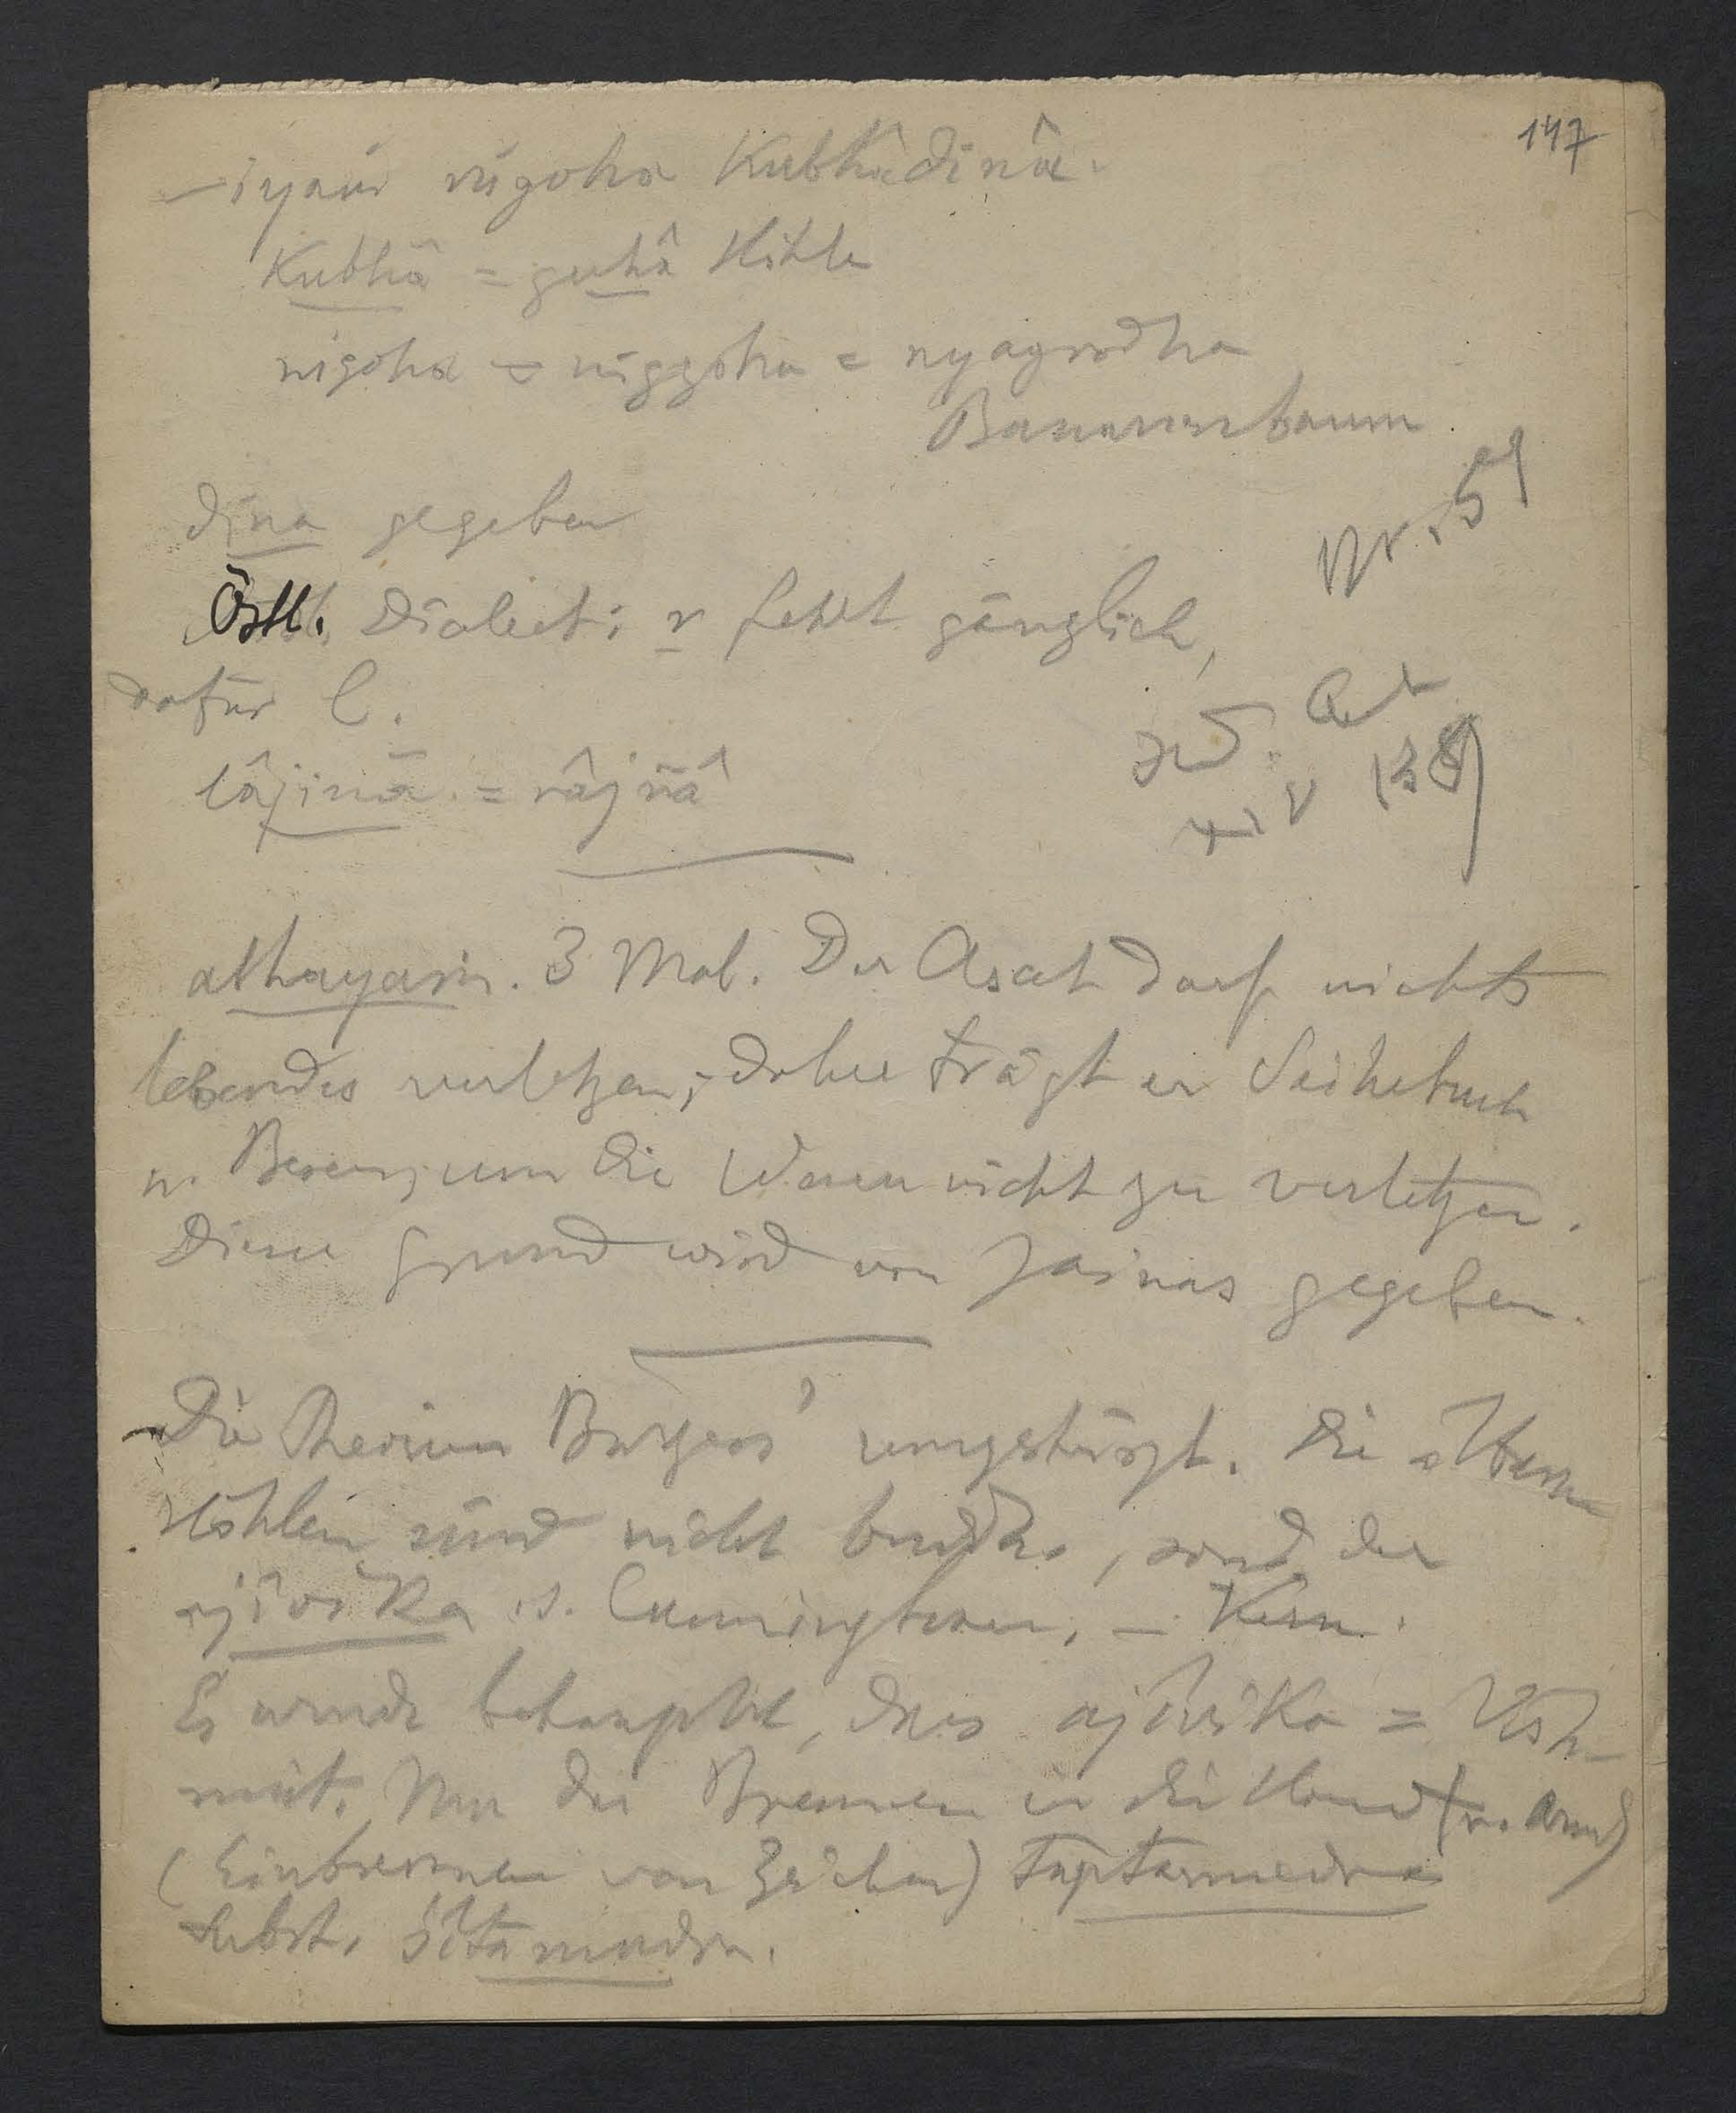 147
– iyaṁ nigoha Kubhâdinâ.
Kubhâ = guhâ Höhle
nigoha = niggoha = nyagrodha
Bananenbaum
dina gegeben
Nr. 59
Östl. Dialect: r fehlt gänzlich,
dafür l.
Ind. Ant
XIV 138
lâjinâ = râjñâ
athayaṁ. 3 Mal. Der Ascet darf nichts
lebendes verletzen; daher trägt er Seihetuch
u. Besen, um die Wesen nicht zu verletzen.
Dieser Grund wird von Jainas gegeben.
Die Theorien Burgess' umgestürzt. Die älteren
Höhlen sind nicht buddh., sond. der
ajîvika s. Cunningham. – Kern.
Es wurde behauptet, dass ajîvika = Vish-
nuit. Nur die Brennen in die Hand (u. Arm)
(Einbrennen von Zeichen) taptamudra
selbst. śîtamudra.